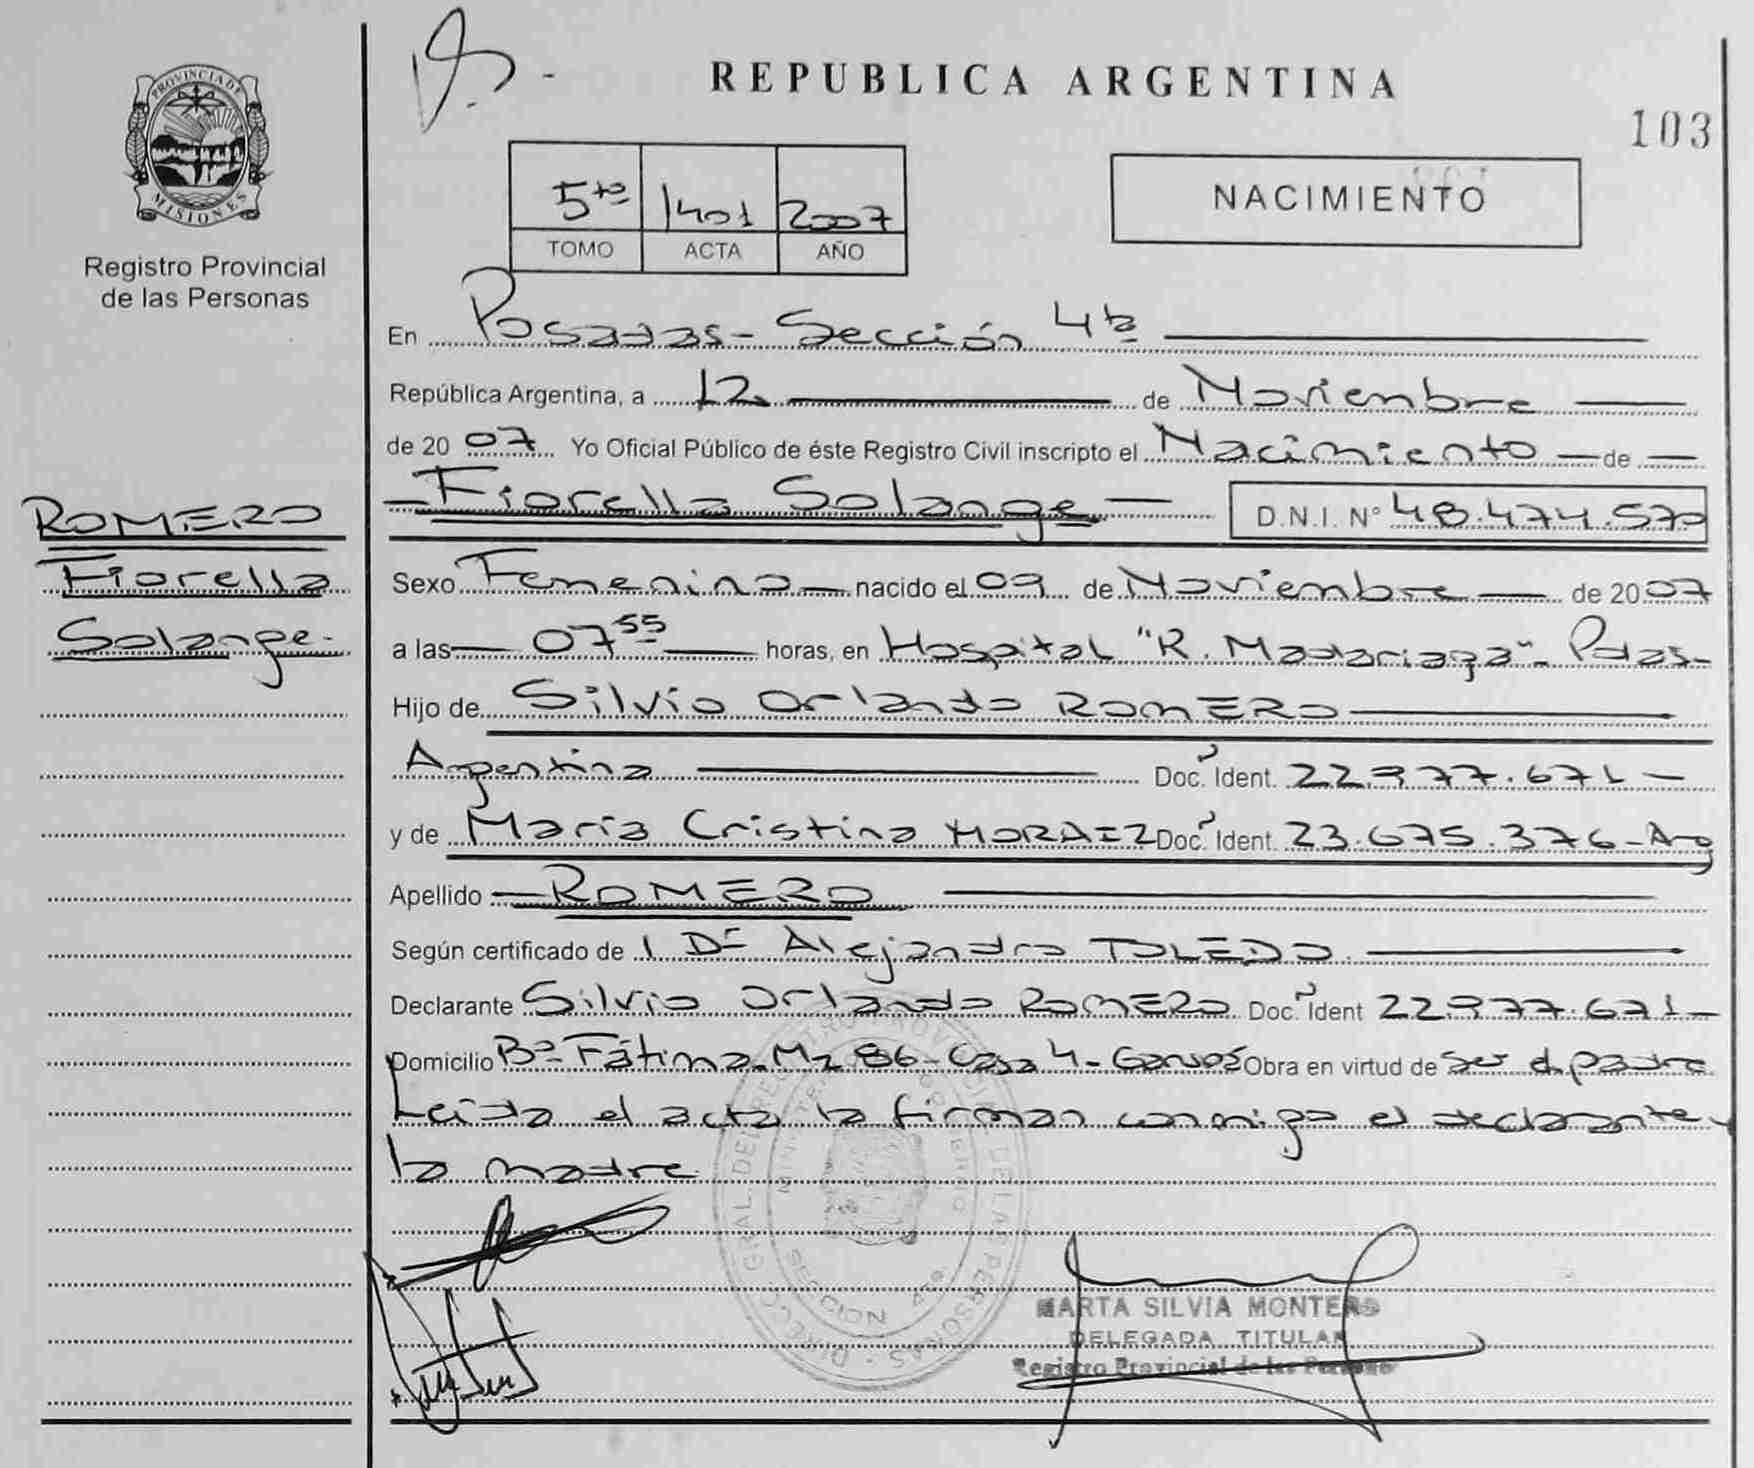 PROVINCIA DE
MISIONES
Registro Provincial
de las Personas
ROMERO
Fiorella
Solange.
REPUBLICA ARGENTINA
103
5to 1401 2007
TOMO ACTA AÑO
NACIMIENTO
En Posadas - Sección 4ta
República Argentina, a 12 de Noviembre
de 2007 Yo Oficial Público de éste Registro Civil inscripto el Nacimiento de
Fiorella Solange D.N.I. N° 48.474.570
Sexo Femenino nacido el 09 de Noviembre de 2007
a las 07 55 horas, en Hospital "R. Madariaga" - Pdas -
Hijo de Silvio Orlando ROMERO
Argentina Doc. Ident. 22.977.671 -
y de María Cristina MORAIZ Doc. Ident. 23.675.376 - Arg
Apellido ROMERO
Según certificado de 1 Dr Alejandro TOLEDO.
Declarante Silvio Orlando ROMERO Doc. Ident 22.977.671 -
Domicilio Bº Fátima - Mz 86 - Casa 4 - Garupá Obra en virtud de ser el padre
Leída el acta la firman conmigo el declarante y
la madre
MARTA SILVIA MONTERO
DELEGADA TITULAR
Registro Provincial de las Personas